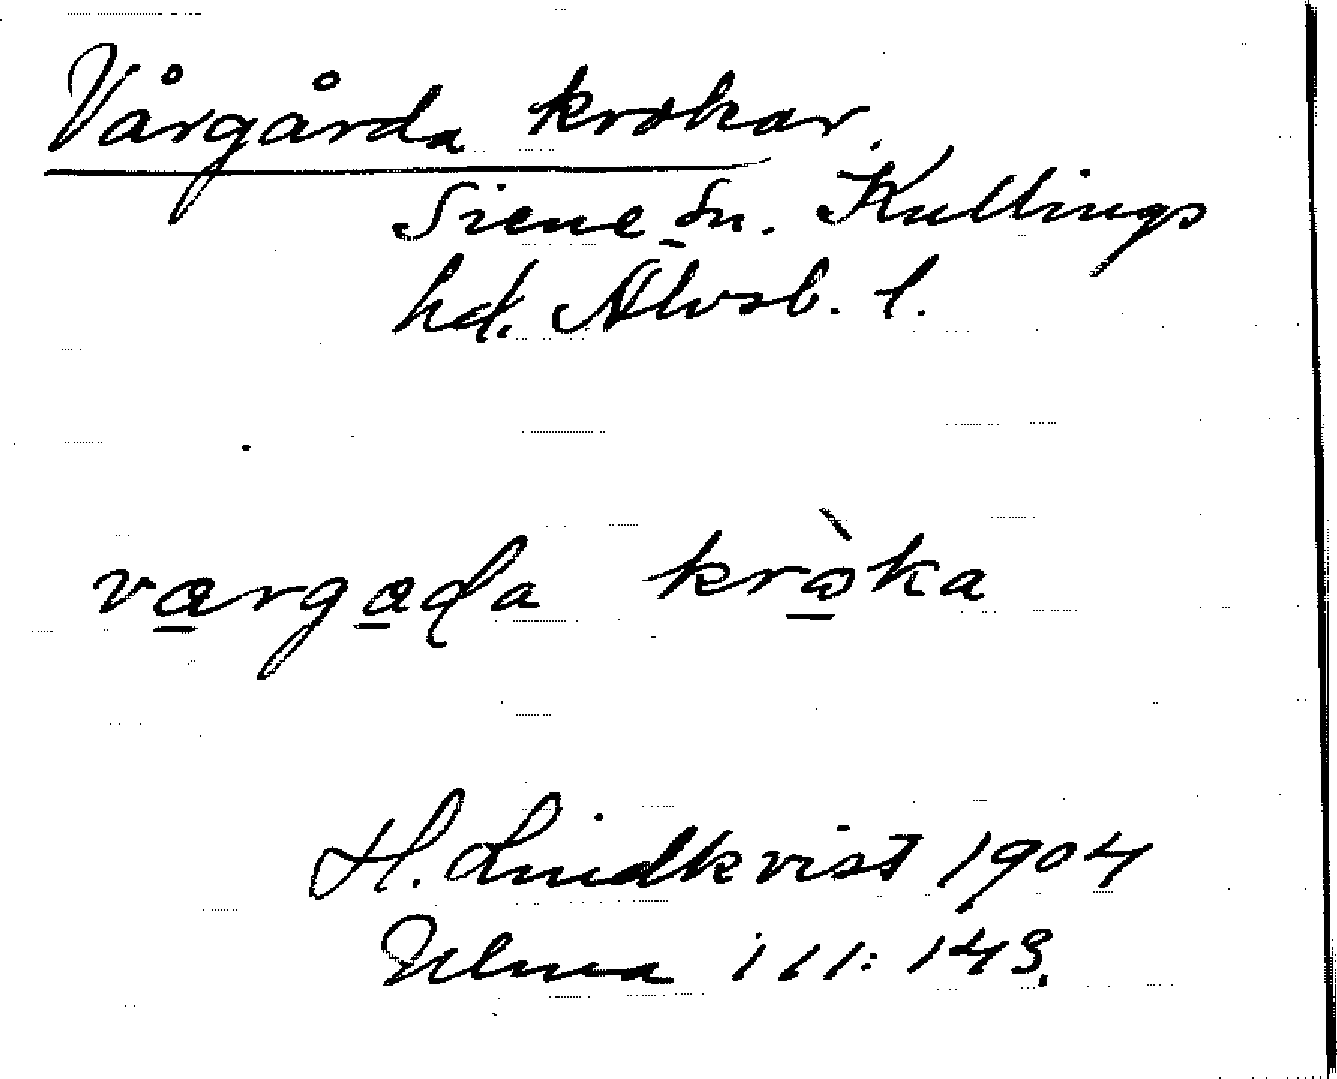 Vårgårda krokar.
Siene sn. Kullings
hd. Älvsb. l.
va̲rga̲da krò̲ka
H. Lindkvist 1904
Ulma 111:143.